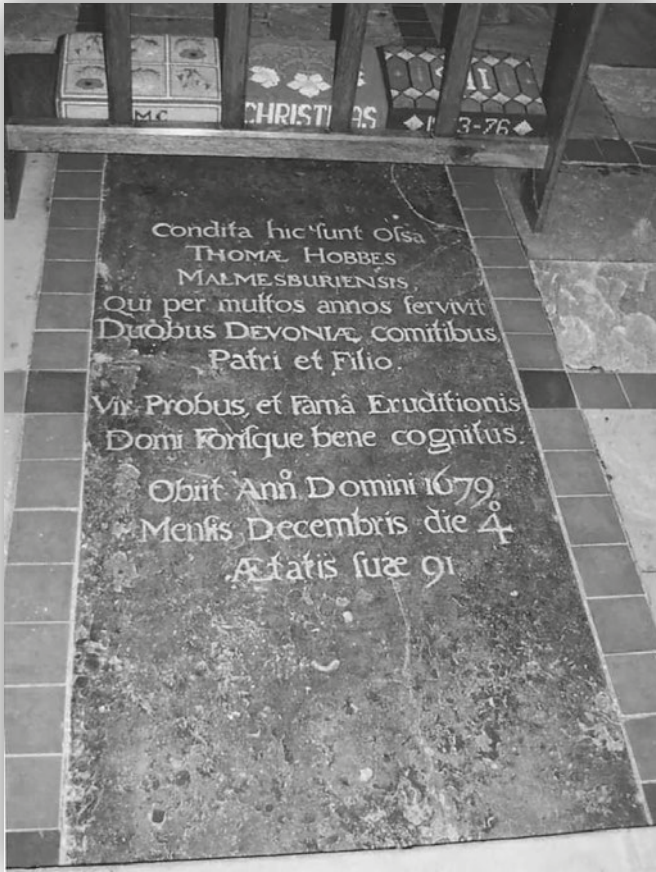 MC
CHRISTMAS
3-76
Condita hic ſunt Oſsa
THOMÆ HOBBES
MALMESBURIENSIS,
Qui per multos annos ſervivit
Duobus DEVONIÆ comitibus,
Patri et Filio.
Vir Probus, et Famâ Eruditionis
Domi Foriſque bene cognitus.
Obiit Anň Domini 1679,
Menſis Decembris die 4̊
Ætatis ſuæ 91